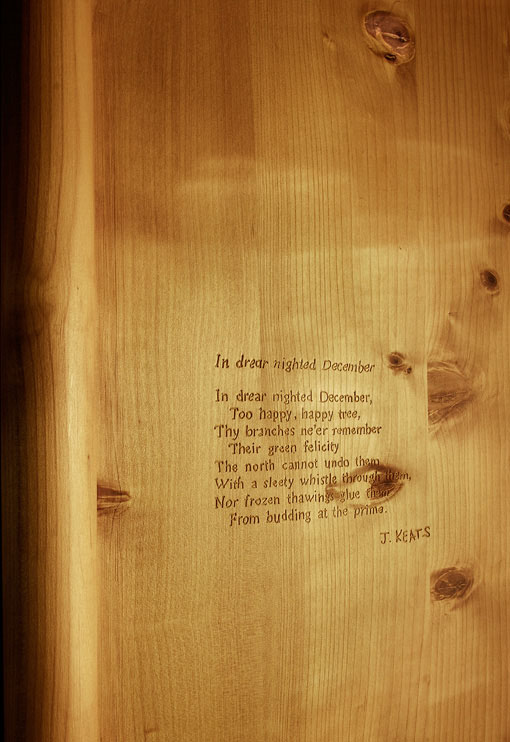 In drear nighted December
In drear nighted December,
Too happy, happy tree,
Thy branches ne'er remember
Their green felicity
The north cannot undo them
With a sleety whistle through them,
Nor frozen thawings glue them
From budding at the prime.
J. KEATS